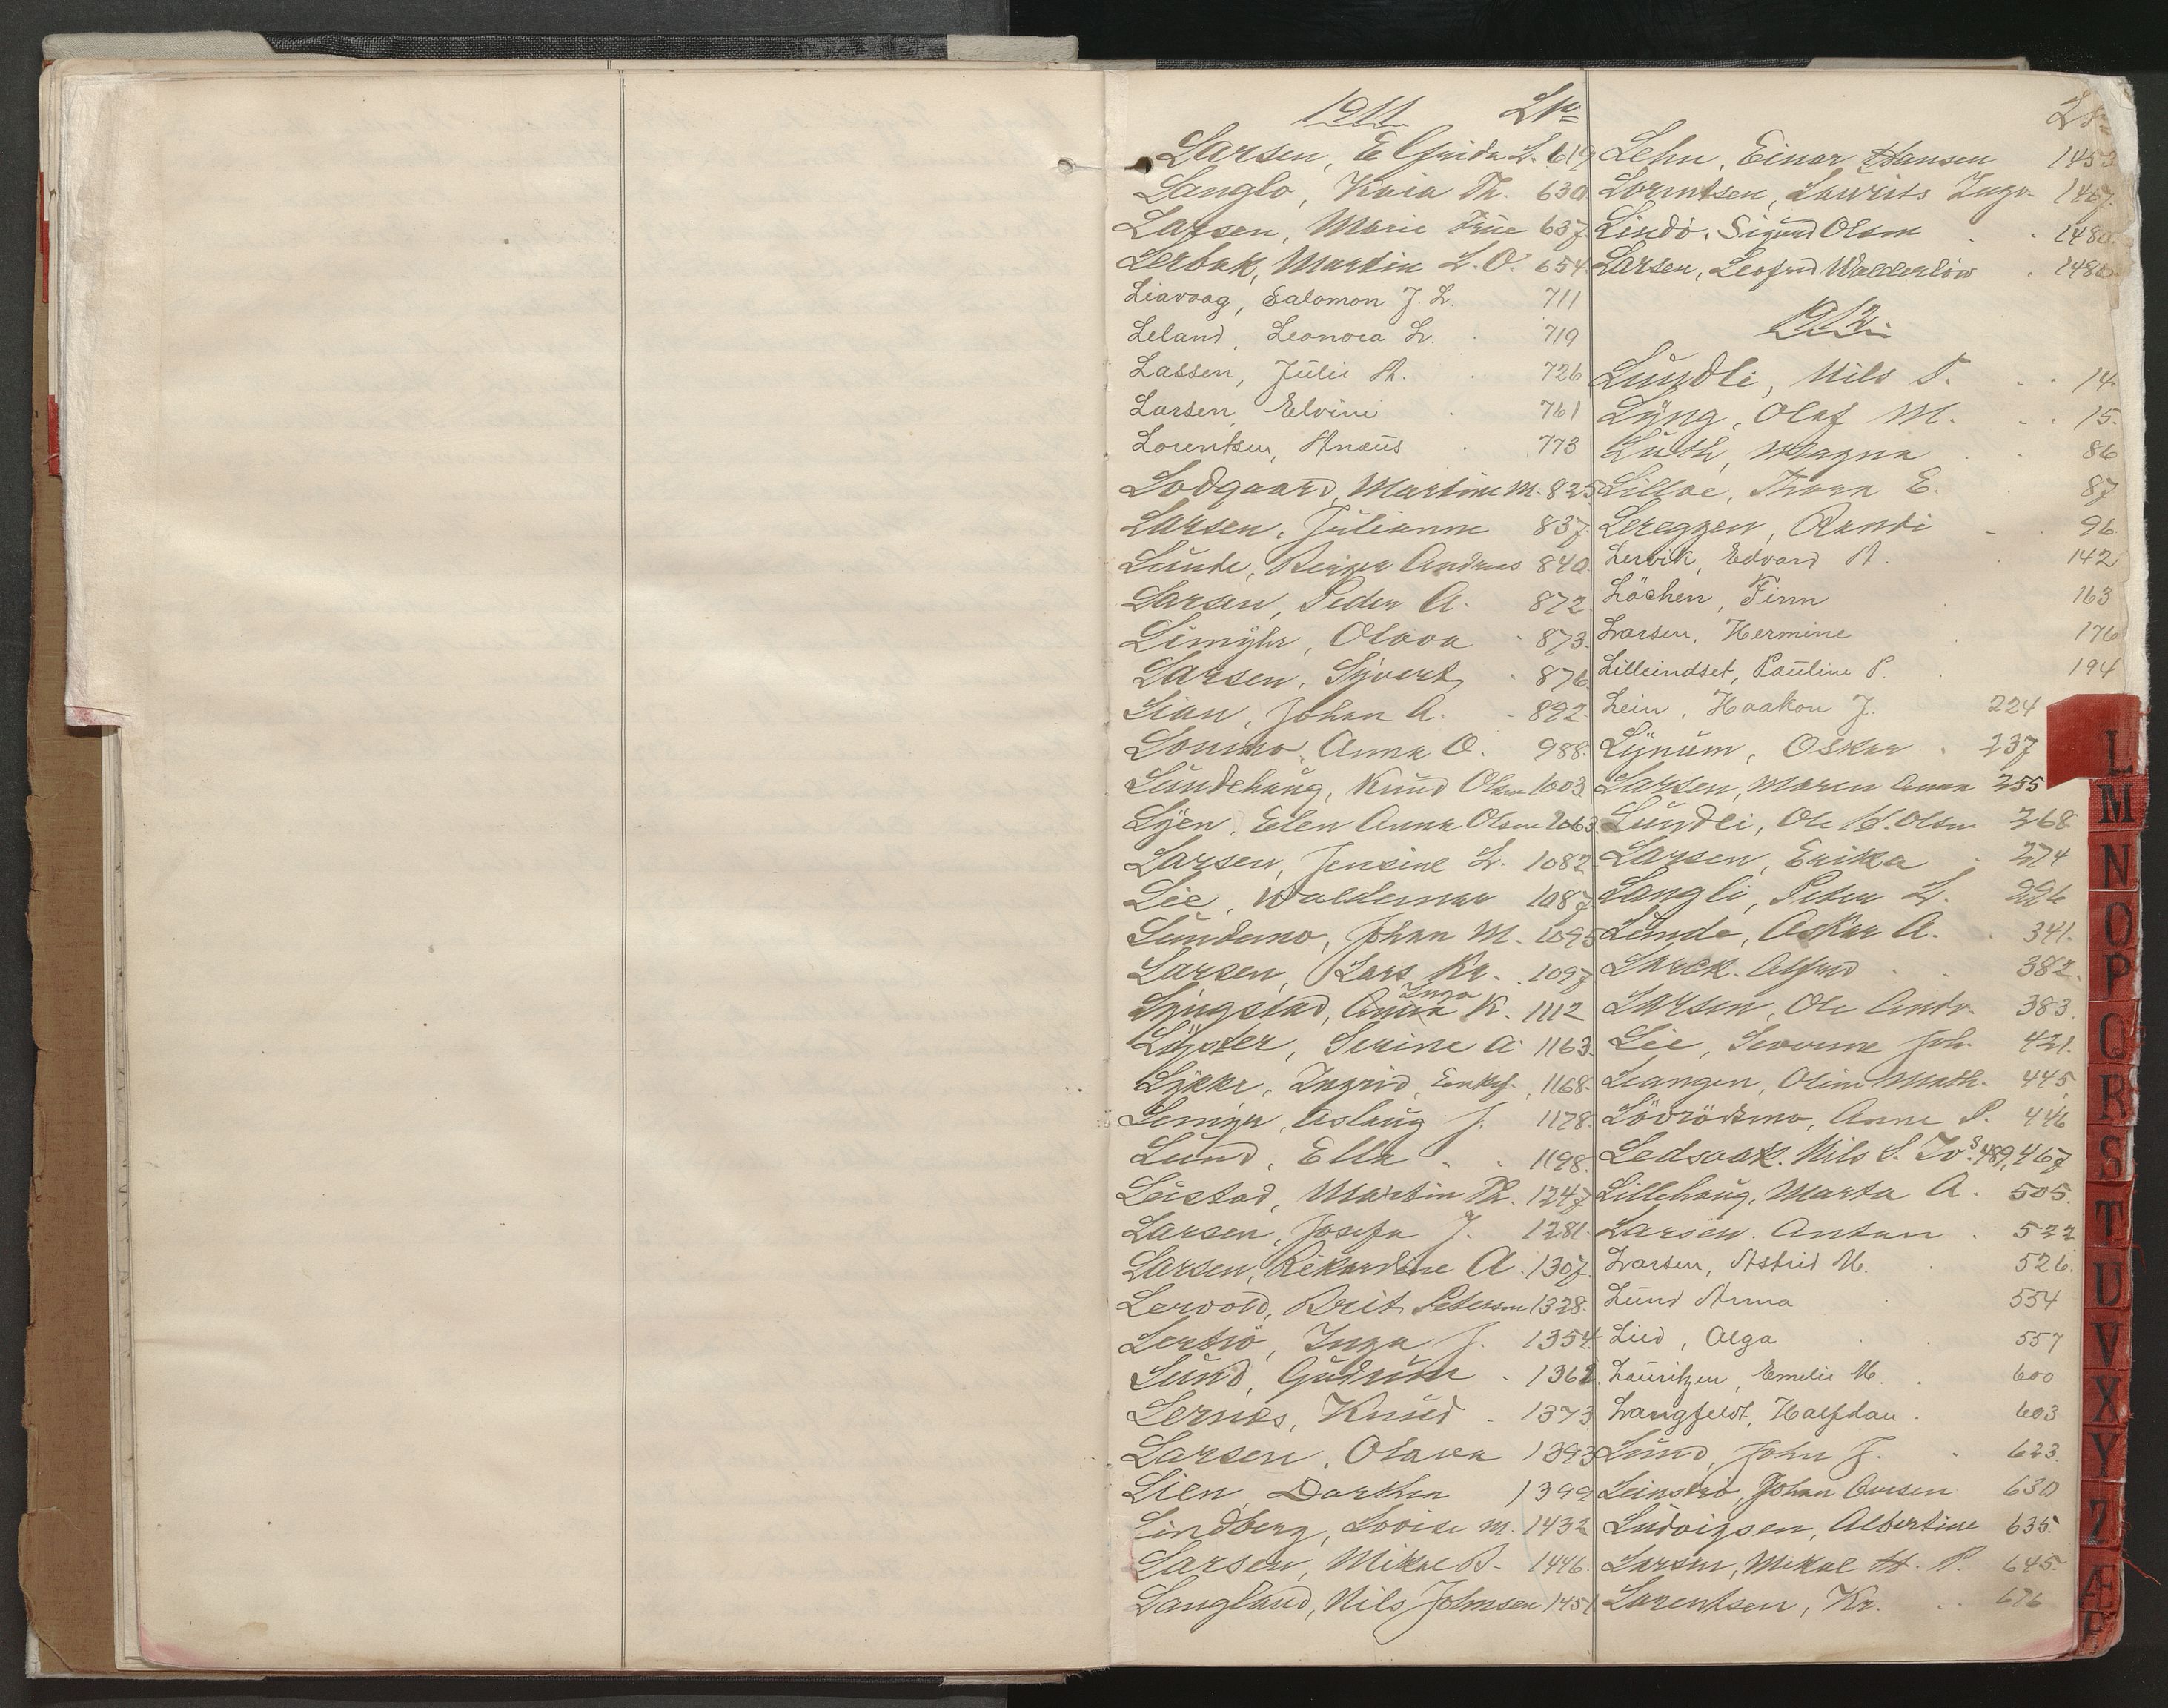 1911 Nr
Larsen, Elfrida L. 619
Langlo, Kaia Th. 630.
Larsen, Marie Trine 637.
Lerbak, Martin L. O. 654.
Liavaag, Salomon J. L. 711
Leland, Leonora L. 719
Lassen, Julie A. 726
Larsen, Elvine 761
Lorentsen, Anæus 773
Lodgaard, Martine M. 825
Larsen, Julianne 837.
Lunde, Birger Andreas 840.
Larsen, Peder A. 872.
Limyhr, Olava 873.
Larsen, Sivert 876
Lian, Johan A. 892.
Lonmo, Anna O. 988.
Lundehaug, Knud Olsen 1003.
Lyen, Elen Anna Olsen 1063.
Larsen, Jensine L. 1082
Lie, Waldemar 1087
Lundemo, Johan M. 1095
Larsen, Lars Kr. 1097
Lyngstad, Inga K. 1112
Lyster, Serine A. 1163.
Lykke, Ingrid 1168.
Lemyr, Aslaug J. 1178.
Lund, Ella 1198.
Leistad, Martin Th. 1247
Larsen, Josefa J. 1281.
Larsen, Rikardine A. 1307.
Lervold, Brit Petersen 1328.
Lertrø, Inga J. 1354.
Lund, Gudrun 1362.
Lernes, Knud 1373
Larsen, Olava 1393
Lien, Dorthea 1399
Lindberg, Lovise M. 1432
Larsen, Mikal B. 1446.
Langland, Nils Johnsen 1451
Nr
Lehn, Einar Hansen 1453
Lorentsen, Laurits Ingv. 1467.
Lindö, Sigurd Olsen 1480.
Larsen, Leofred Walderløv 1481.
1912.
Lundli, Nils P. 14.
Lyng, Olaf M. 15.
Luth, Magna 86
Lilloe, Thora E. 87
Lereggen, Randi 96
Lervik, Edvard A. 142
Löchen, Finn 163
Larsen, Hermine 176
Lilleindset, Pauline P. 194
Lein, Haakon J. 224
Lynum, Oskar 237
Larsen, Maren Anna 255
Lundli, Ole K. Olsen 268.
Larsen, Erika 274
Langli, Peter L. 296
Lunde, Oskar A. 341.
Larck, Alfred 382.
Larsen, Ole Andr. 383.
Lie, Severine Joh. 421.
Leangen, Oline Math. 445.
Lövrödsmo, Anne P. 446
Ledsaak, Nils S. 489, 467
Lillehaug, Marta A. 505.
Larsen, Anton 522
Larsen, Astrid M. 526.
Lund Anna 554
Lied, Olga 557
Lauritzen, Emelie M. 600
Langfeldt, Halfdan. 603
Lund, John J. 623.
Leinstrø, Johan Ovesen 630
Ludvigsen, Albertine 635.
Larsen, Mikal H. P. 645.
Lorentsen, Kr. 676
L
M
N
O
P
Q
R
S
T
U
V
X
Y
Z
Æ